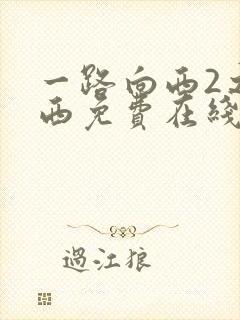 一路向西2
西免费在线
過江狼